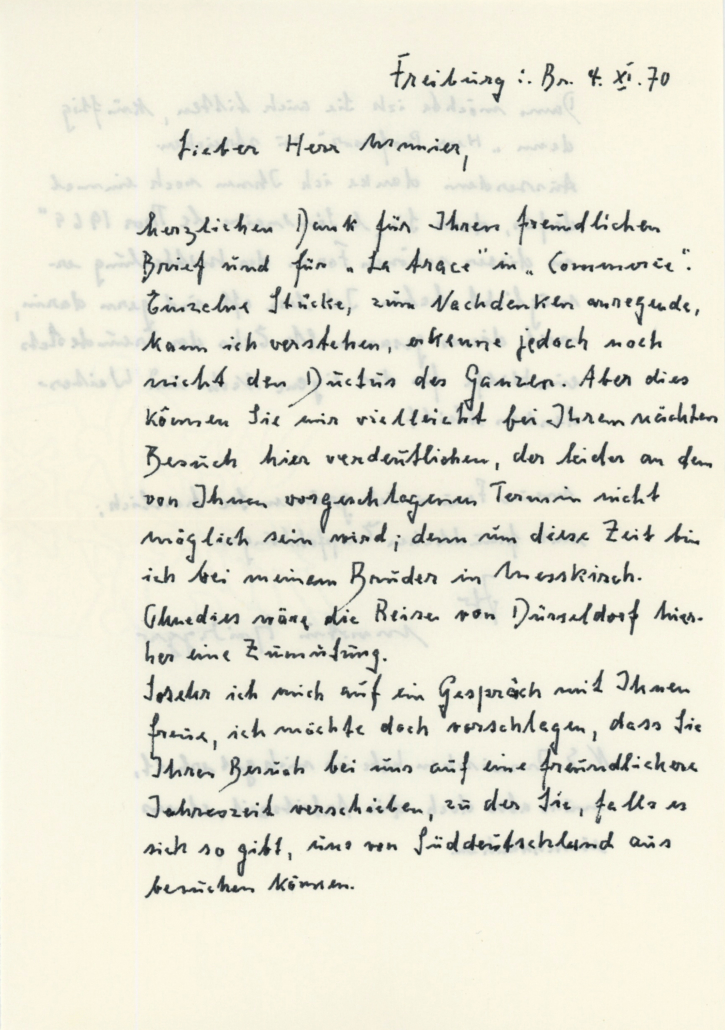 Freiburg i. Br. 4. XI. 70
Lieber Herr Munier,
herzlichen Dank für Ihren freundlichen
Brief und für „La trace" in „Commerce".
Einzelne Stücke, zum Nachdenken anregende,
kann ich verstehen, erkenne jedoch noch
nicht den Ductus des Ganzen. Aber dies
können Sie mir vielleicht bei Ihrem nächsten
Besuch hier verdeutlichen, der leider an dem
von Ihnen vorgeschlagenen Termin nicht
möglich sein wird; denn um diese Zeit bin
ich bei meinem Bruder in Messkirch.
Ohnedies wäre die Reise von Düsseldorf hier-
her eine Zumutung.
Sosehr ich mich auf ein Gespräch mit Ihnen
freue, ich möchte doch vorschlagen, dass Sie
Ihren Besuch bei uns auf eine freundlichere
Jahreszeit verschieben, zu der Sie, falls es
sich so gibt, uns von Süddeutschland aus
besuchen können.